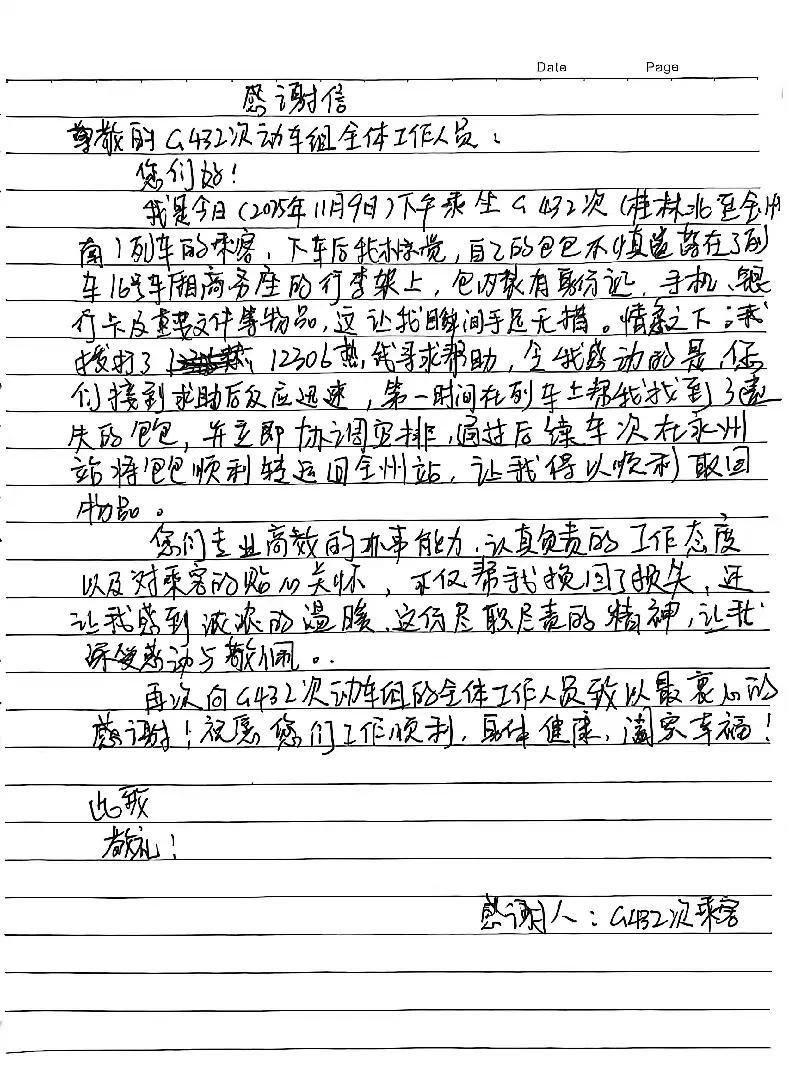 Date Page
感谢信
尊敬的G432次动车组全体工作人员:
您们好!
我是今日(2025年11月9日)下午乘坐G432次(桂林北至全州
南)列车的乘客,下车后我才惊觉,自己的包包不慎遗落在了列
车16号车厢商务座的行李架上,包内装有身份证、手机、银
行卡及重要文件等物品,这让我瞬间手足无措。情急之下,我
拨打了12306热线寻求帮助,令我感动的是,你
们接到求助后反应迅速,第一时间在列车上帮我找到了遗
失的包包,并立即协调安排,通过后续车次在永州
站将包包顺利转运回全州站,让我得以顺利取回
物品。
您们专业高效的办事能力、认真负责的工作态度
以及对乘客的贴心关怀,不仅帮我挽回了损失,还
让我感到浓浓的温暖,这份尽职尽责的精神,让我
深受感动与敬佩。
再次向G432次动车组的全体工作人员致以最衷心的
感谢!祝愿您们工作顺利,身体健康,阖家幸福!
此致
敬礼!
感谢人:G432次乘客